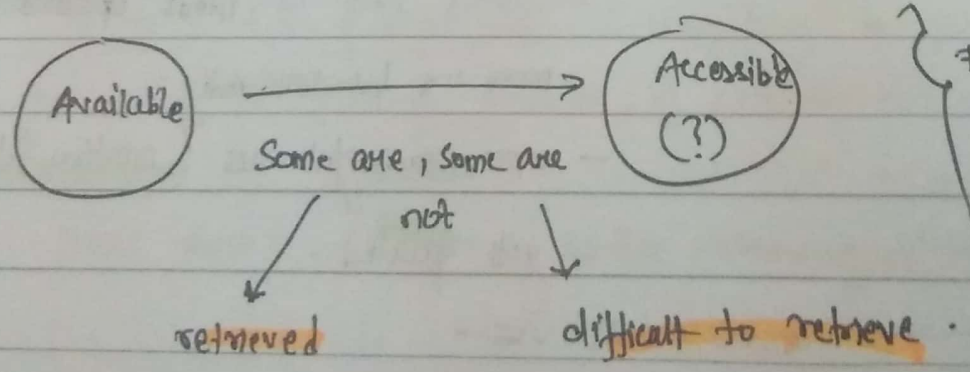 Available
Accessible
(?)
Some are, some are
not
retrieved
difficult to retrieve.